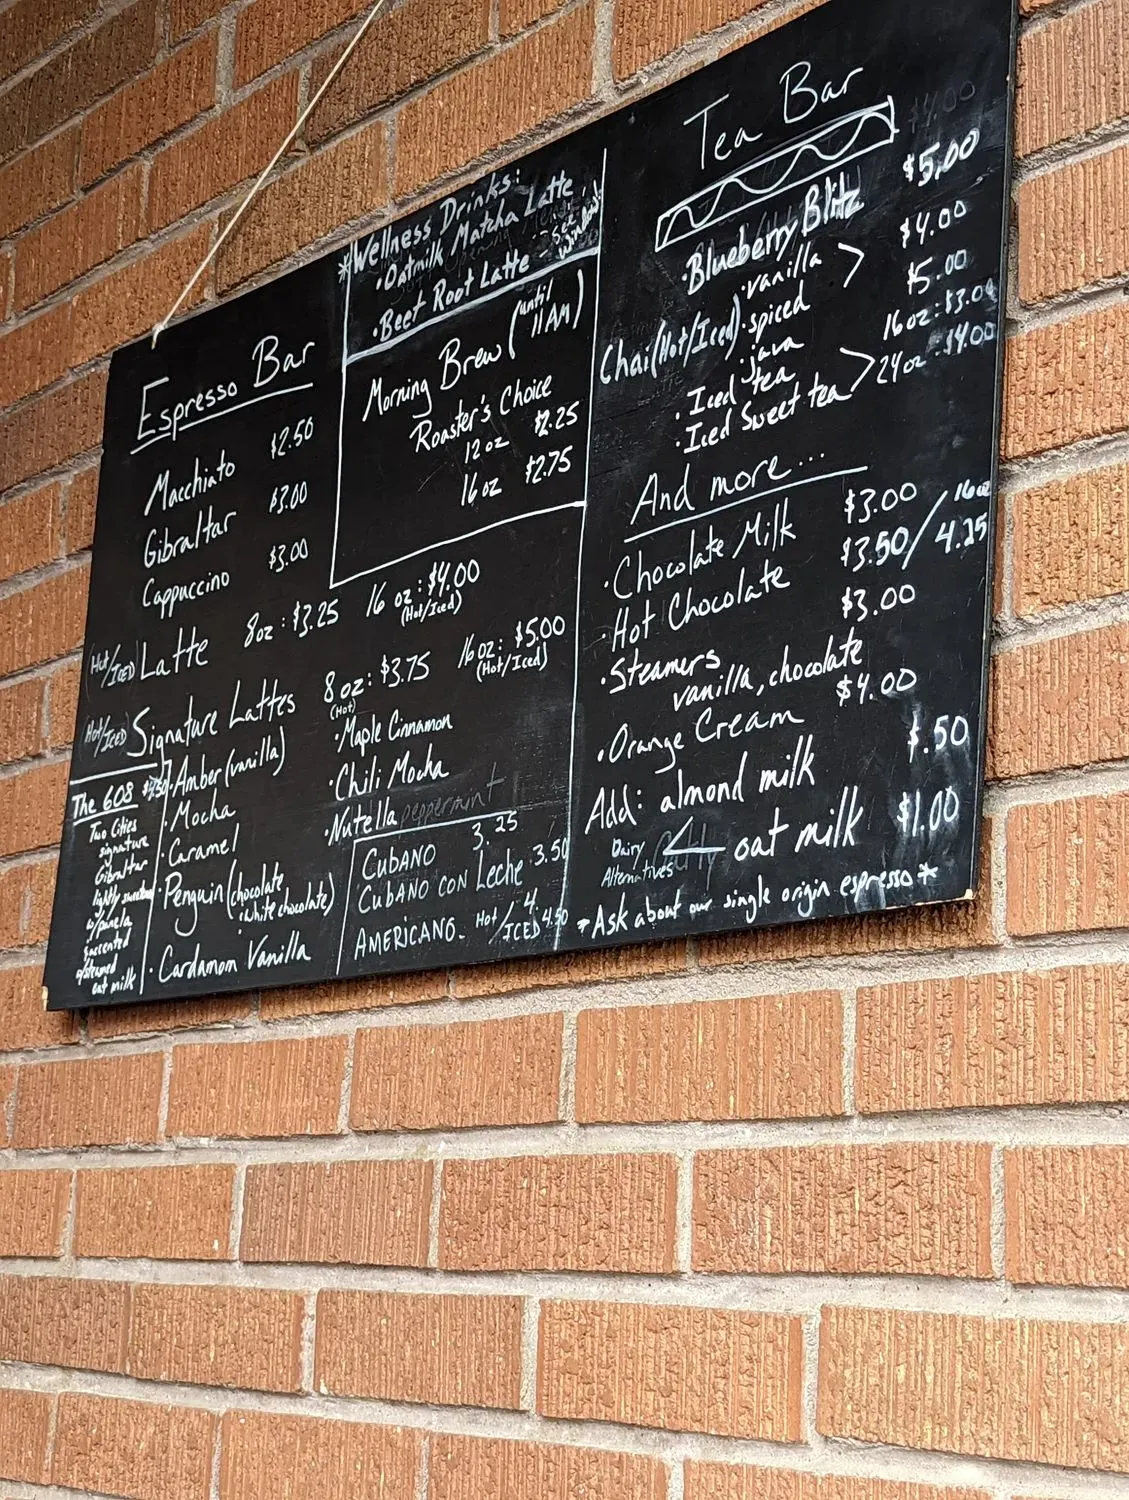 Espresso Bar
Macchiato $2.50
Gibraltar $3.00
Cappuccino $3.00
(Hot/Iced) Latte 8oz: $3.25 16 oz: $4.00
(Hot/Iced)
(Hot/Iced) Signature Lattes 8oz: $3.75 16oz: $5.00
(Hot) (Hot/Iced)
• Amber (vanilla)
• Mocha
• Caramel
Penguin (chocolate
white chocolate)
• Cardamom Vanilla
• Maple Cinnamon
• Chili Mocha
• Nutella peppermint
The 608
Two Cities
signature
Gibraltar
lightly sweetened
w/panela
& accented
w/steamed
oat milk
CUBANO 3.25
CUBANO CON Leche 3.50
AMERICANO- Hot/ICED 4/4.50
*Wellness Drinks:
• Oatmilk Matcha Latte
• Beet Root Latte - see window
Morning Brew (until 11AM)
Roaster's Choice
12oz $2.25
16oz $2.75
Tea Bar
$4.00
• Blueberry Blitz $5.00
Chai (Hot/Iced) • vanilla $4.00
• spiced $5.00
• java
• Iced tea 16oz: $3.00
• Iced Sweet tea 24oz $4.00
And more...
• Chocolate Milk $3.00
• Hot Chocolate $3.50/ 16oz 4.25
• Steamers $3.00
vanilla, chocolate
• Orange Cream $4.00
Add: almond milk $.50
oat milk $1.00
Dairy
Alternatives
*Ask about our single origin espresso*